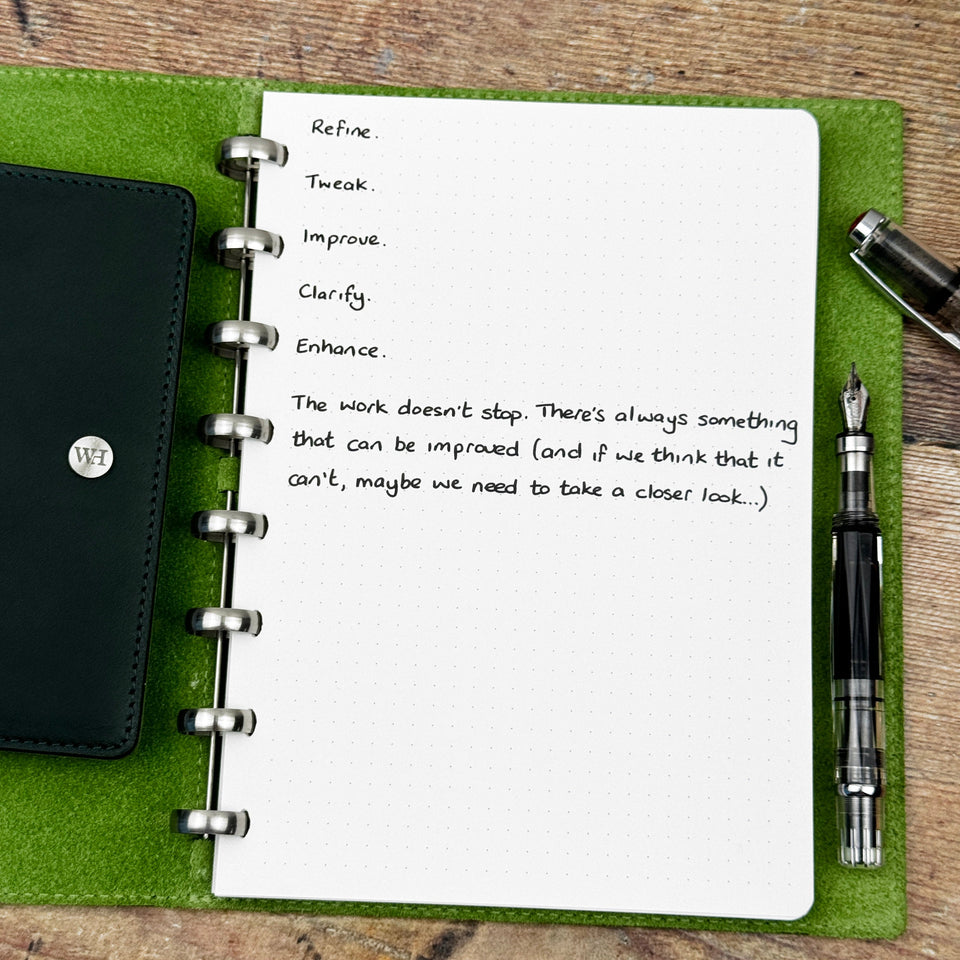 Refine.
Tweak.
Improve.
Clarify.
Enhance.
The work doesn't stop. There's always something
that can be improved (and if we think that it
can't, maybe we need to take a closer look...)
WH